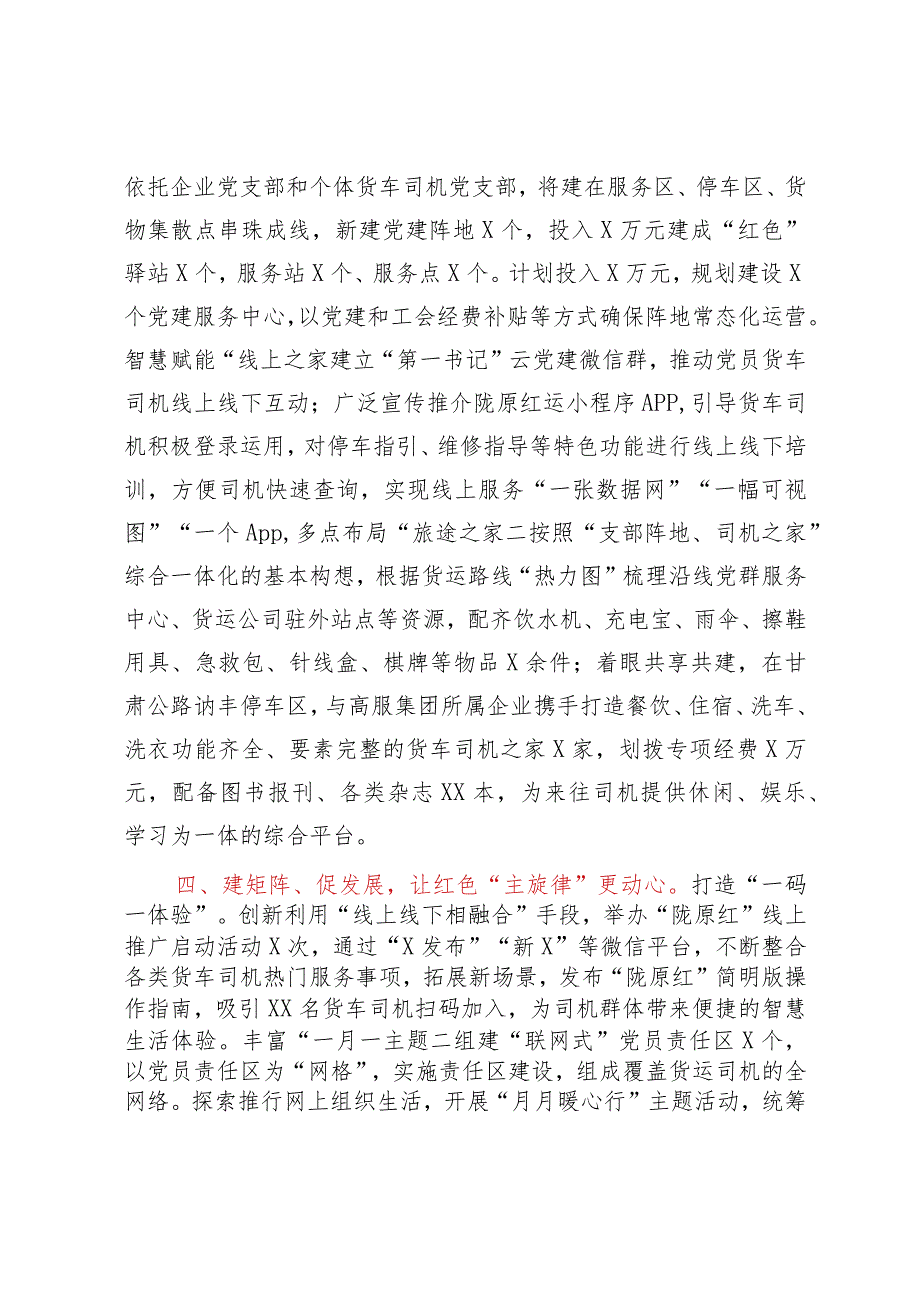 依托企业党支部和个体货车司机党支部，将建在服务区、停车区、货
物集散点串珠成线，新建党建阵地X个，投入X万元建成“红色”
驿站X个，服务站X个、服务点X个。计划投入X万元，规划建设X
个党建服务中心，以党建和工会经费补贴等方式确保阵地常态化运营。
智慧赋能“线上之家建立“第一书记”云党建微信群，推动党员货车
司机线上线下互动；广泛宣传推介陇原红运小程序APP,引导货车司
机积极登录运用，对停车指引、维修指导等特色功能进行线上线下培
训，方便司机快速查询，实现线上服务“一张数据网”“一幅可视
图”“一个App,多点布局“旅途之家二按照“支部阵地、司机之家”
综合一体化的基本构想，根据货运路线“热力图”梳理沿线党群服务
中心、货运公司驻外站点等资源，配齐饮水机、充电宝、雨伞、擦鞋
用具、急救包、针线盒、棋牌等物品X余件；着眼共享共建，在甘
肃公路讷丰停车区，与高服集团所属企业携手打造餐饮、住宿、洗车、
洗衣功能齐全、要素完整的货车司机之家X家，划拨专项经费X万
元，配备图书报刊、各类杂志XX本，为来往司机提供休闲、娱乐、
学习为一体的综合平台。
四、建矩阵、促发展，让红色“主旋律”更动心。打造“一码
一体验”。创新利用“线上线下相融合”手段，举办“陇原红”线上
推广启动活动X次，通过“X发布”“新X”等微信平台，不断整合
各类货车司机热门服务事项，拓展新场景，发布“陇原红”简明版操
作指南，吸引XX名货车司机扫码加入，为司机群体带来便捷的智慧
生活体验。丰富“一月一主题二组建“联网式”党员责任区X个，
以党员责任区为“网格”，实施责任区建设，组成覆盖货运司机的全
网络。探索推行网上组织生活，开展“月月暖心行”主题活动，统筹